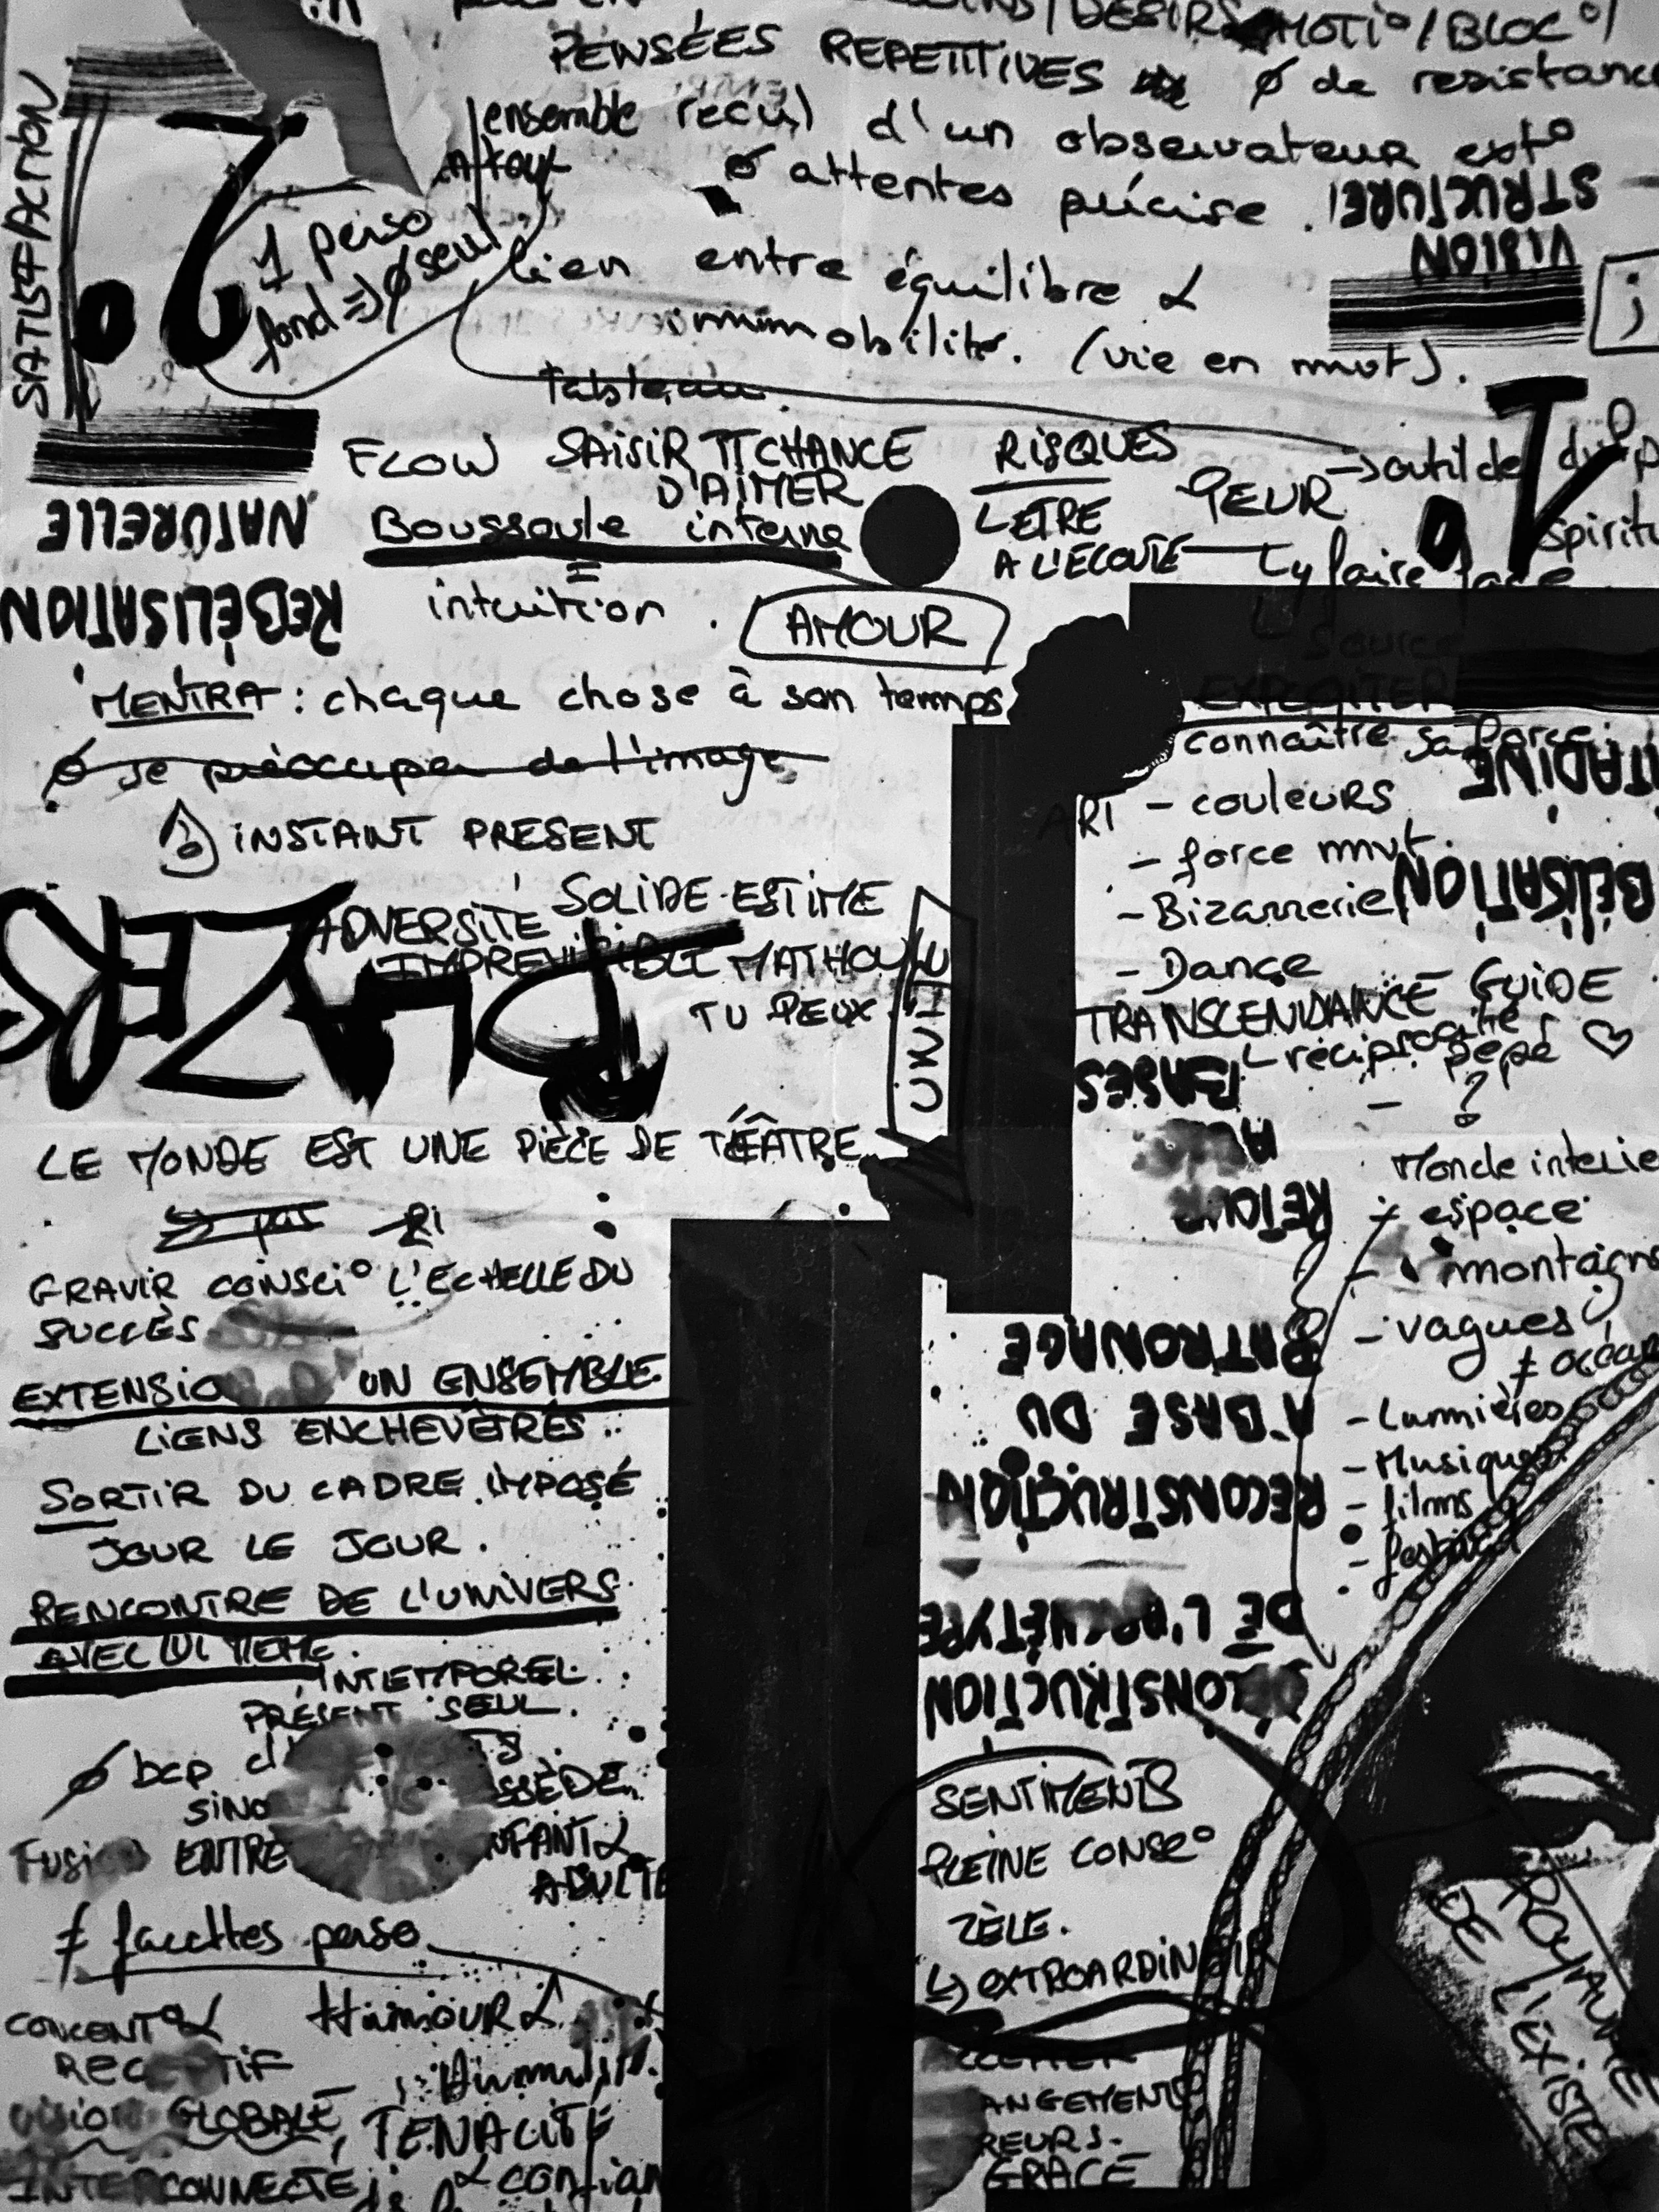 /DESIR
MOTI°/BLOC°/
PENSÉES REPETITIVES ø de resistance
ensemble recul d'un observateur ext°
ø attentes précise.
STRUCTURE!
VISION
SATISFACTION
1 perso
fond => ø seul
lien entre équilibre &
immobilité. (vie en mvt).
Tableau.
FLOW SAISIR TT CHANCE
D'AIMER
RISQUES
L'ETRE
A L'ECOUTE
PEUR → outil de
y faire face
Boussole interne
=
intuition.
AMOUR
NATURELLE
REBÉLISATION
source
EXPLOITER
connaître sa force
MENTRA : chaque chose à son temps
ø se préoccuper de l'image
INSTANT PRESENT
ART - couleurs
- force mvt.
- Bizarrerie
- Danse
TRANSCENDANCE GUIDE
réciprocité
pépé ♡
- ?
BÉLISATION
ADVERSITÉ SOLIDE ESTIME
IMPREVISIBLE MATHOU
TU PEUX.
UNIE
BLAZERS
LE MONDE EST UNE PIÈCE DE TÉÂTRE
BASES
AUX
RETOUR
Monde interie
- espace
- montagn
- vagues
≠ océan
- Lumières
- Musique
- films
- festival
GRAVIR CONSCI° L'ECHELLE DU
SUCCÈS
EXTENSIO UN ENSEMBLE.
LIENS ENCHEVÊTRÉS.
SORTIR DU CADRE IMPOSÉ
JOUR LE JOUR.
RENCONTRE DE L'UNIVERS
AVEC LUI MEME.
INTEMPOREL.
PRÉSENT SEUL.
PATRONAGE
A BASE DU
RECONSTRUCTION
DE L'ARCHÉTYPE
DÉCONSTRUCTION
ø bcp d
SINO SSÈDE.
Fusion ENTRE NFANT &
ADULTE
≠ facettes perso
CONCENT° &
RECEPTIF
VISION GLOBALE,
INTERCONNECTÉ
HUMOUR &
TENACITÉ
& confian
SENTIMENTS
PLEINE CONSC°
ZÈLE.
↳ EXTROARDINAIR
ANGEMENTS
REURS.
GRACE
ROYAUME
DE L'EXISTE